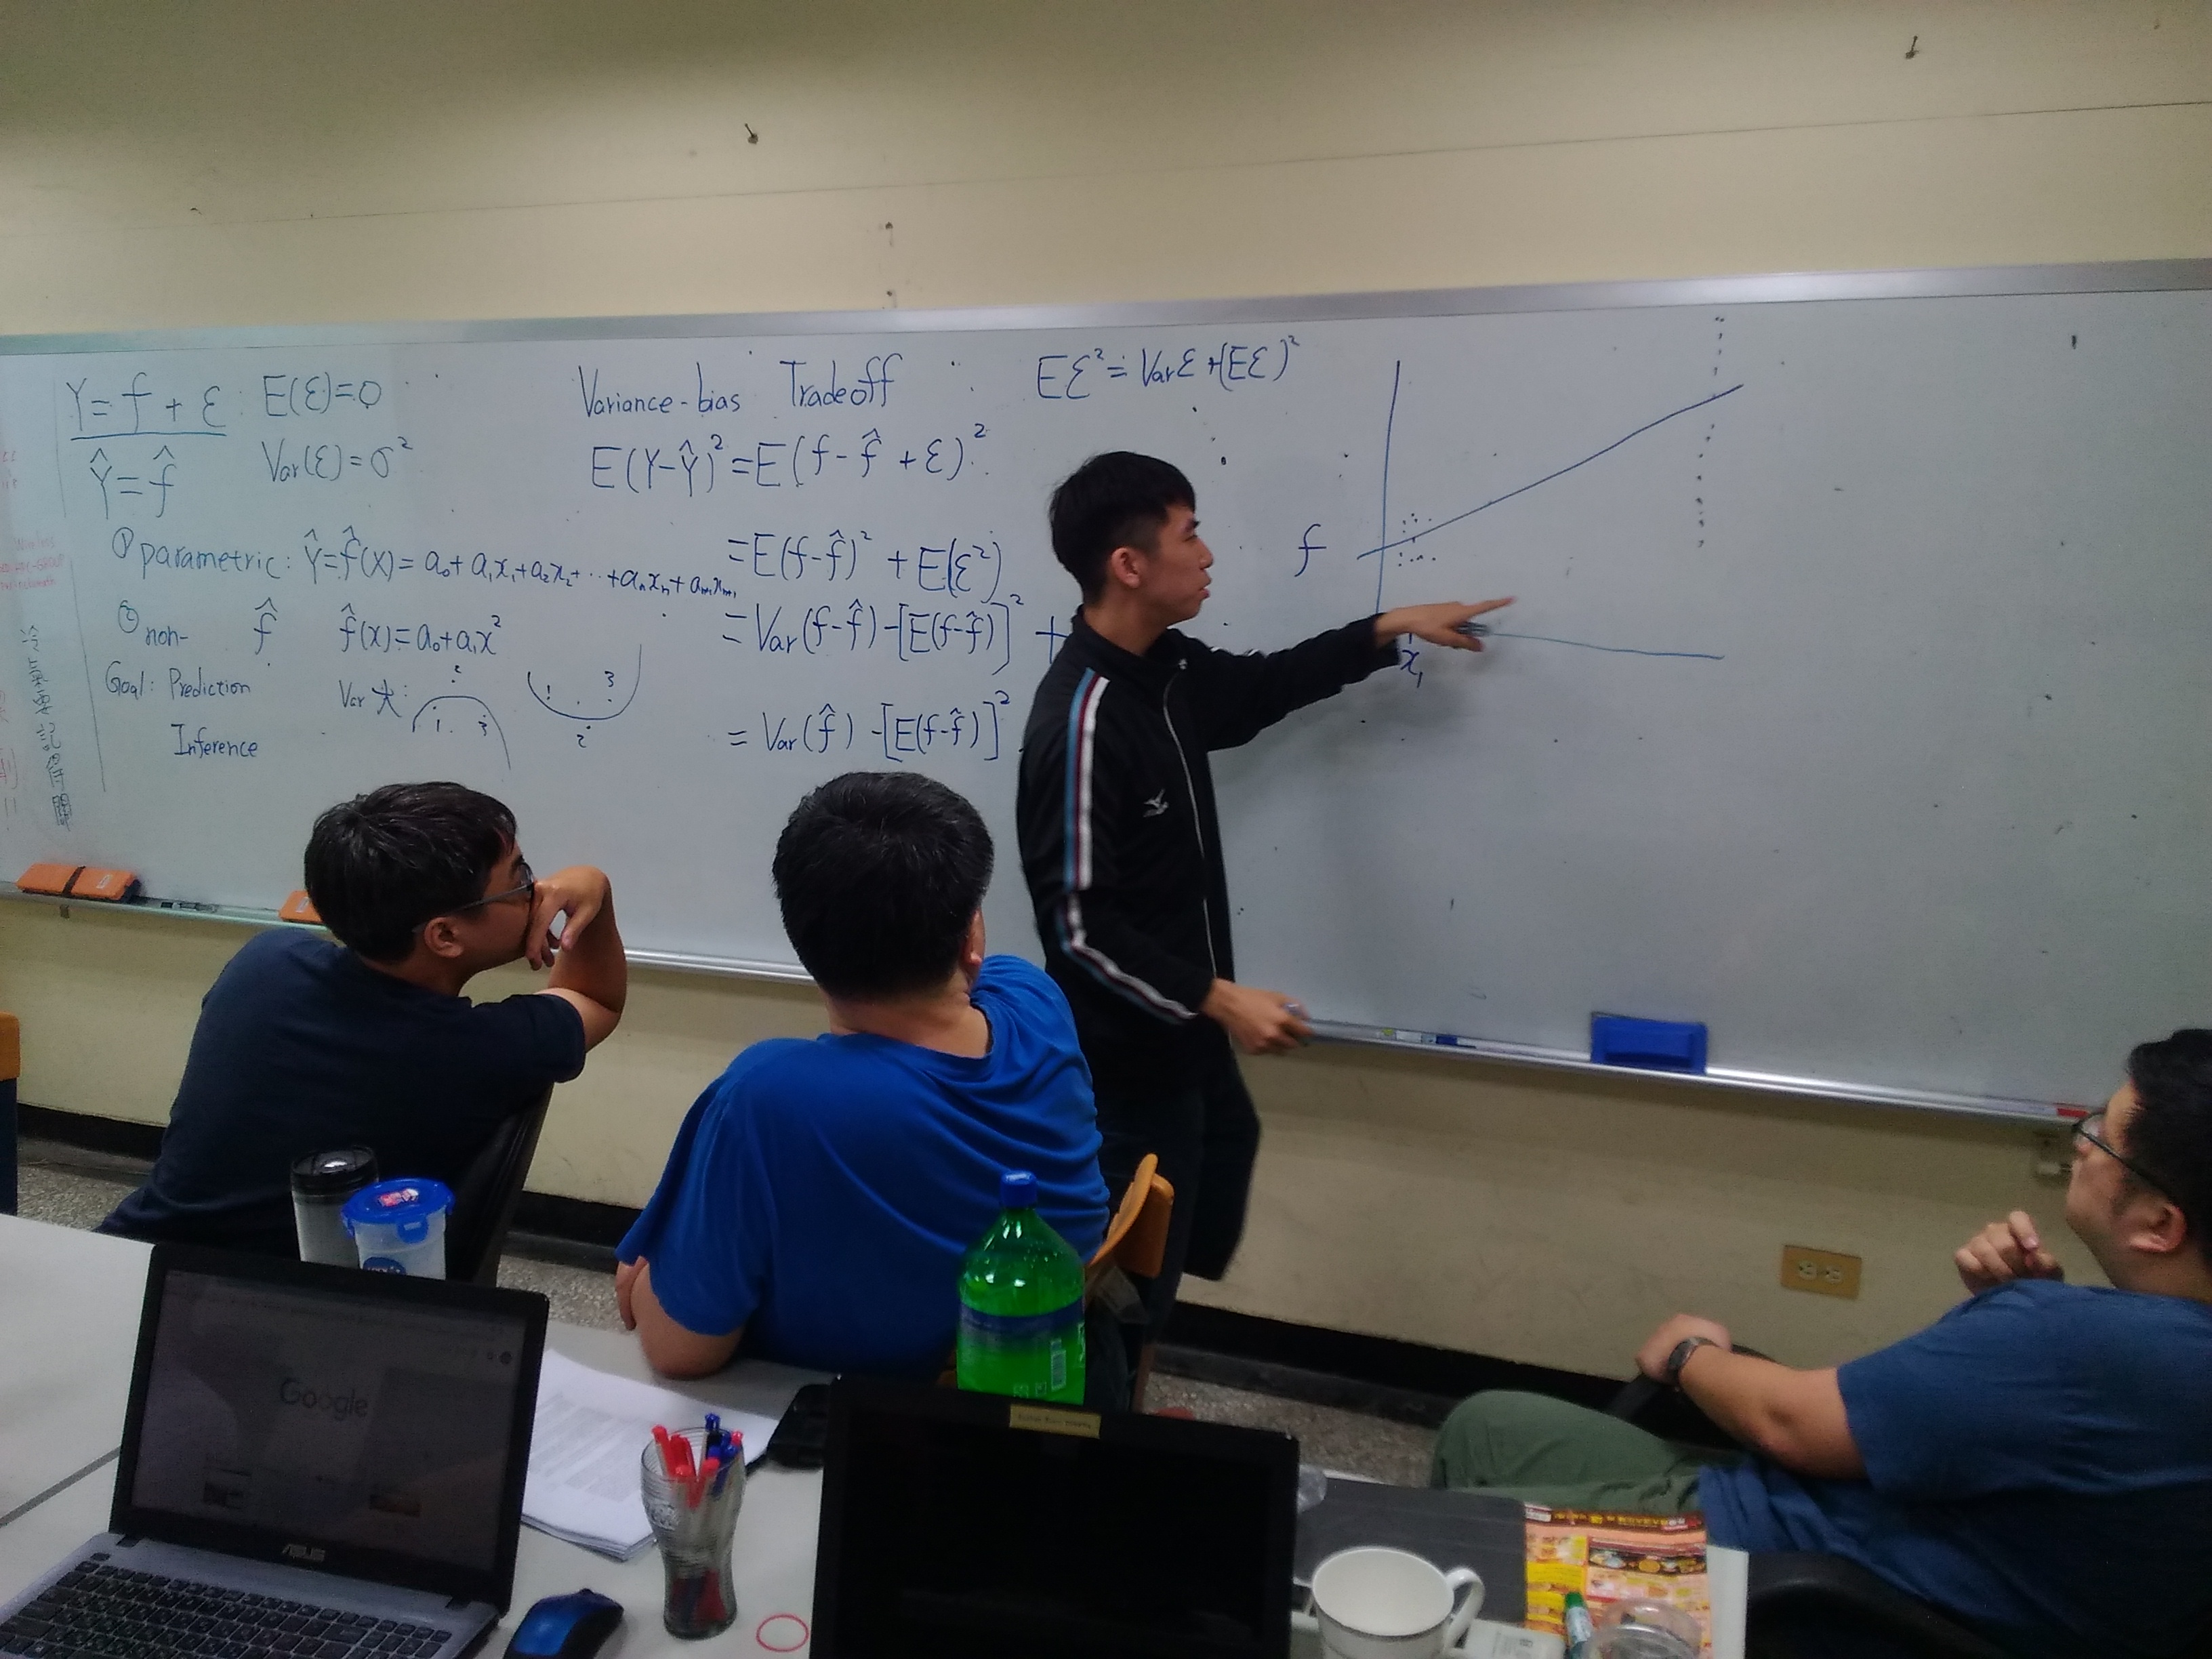 Y=f+ε: E(ε)=0
Var(ε)=σ²
Ŷ=f̂
① parametric: Ŷ=f̂(x)=a₀+a₁x₁+a₂x₂+…+aₙxₙ+aₙ₊₁xₙ₊₁
② non- f̂ f̂(x)=a₀+a₁x²
Goal: Prediction
Inference
Var 大:
2
1 3
1 3
2
Variance-bias Tradeoff
E(Y-Ŷ)²=E(f-f̂+ε)²
=E(f-f̂)²+E(ε²)
=Var(f-f̂)-[E(f-f̂)]²+
=Var(f̂)-[E(f-f̂)]²
Eε²=Varε+(Eε)²
f
x₁
Google
ASUS